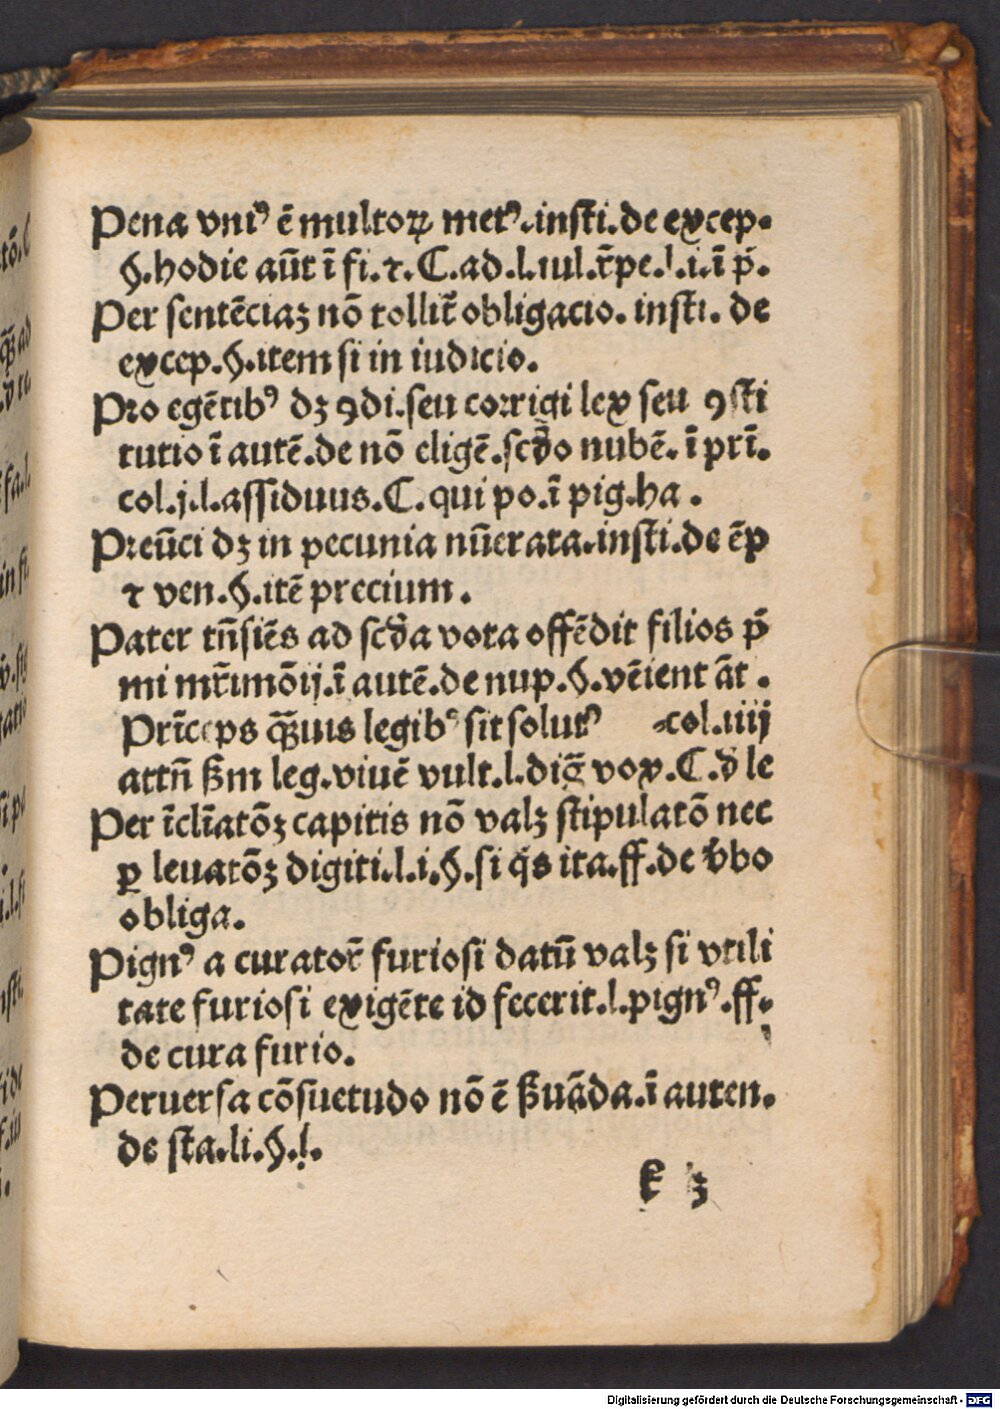 Pena vniꝰ ē multoꝝ metꝰ.insti.de excep.
§.hodie aūt ī fi.⁊.C.ad.l.iul.r̄pe.l.i.ī p̄.
Per sentēciaʒ nō tollit̄ obligacio. insti. de
excep.§.item si in iudicio.
Pro egētibꝰ dʒ ꝯdi.seu corrigi lex seu ꝯsti
tutio ī autē.de nō eligē.scd̄o nubē. ī prī.
col.j.l.assiduus.C.qui po.ī pig.ha.
Preūci dʒ in pecunia nūerata.insti.de ēp
⁊ ven.§.itē precium.
Pater tn̄siēs ad scd̄a vota offēdit filios p̄
mi mr̄imōij.ī autē.de nup.§.vēient āt.
Prīceps qꝫuis legibꝰ sit solutꝰ col.iiij
attn̄ ẞm leg.viuē vult.l.digꝫ vox.C.d̄ le
Per īclīatōʒ capitis nō valʒ stipulatō nec
ꝑ leuatōʒ digiti.l.i.§.si q̇s ita.ff.de v̄bo
obliga.
Pignꝰ a curator̄ furiosi datū valʒ si vtili
tate furiosi exigēte id fecerit.l.pignꝰ.ff.
de cura furio.
Peruersa cōsuetudo nō ē ẞuāda.ī auten.
de sta.li.§.l.
k ʒ
Digitalisierung gefördert durch die Deutsche Forschungsgemeinschaft - DFG